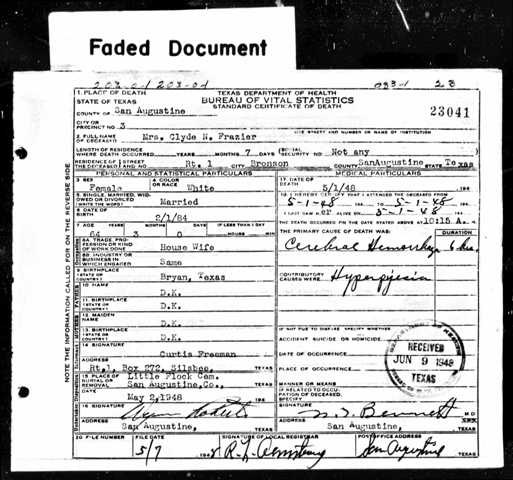 Faded Document
203-01 203-01
1. PLACE OF DEATH
STATE OF TEXAS
TEXAS DEPARTMENT OF HEALTH
BUREAU OF VITAL STATISTICS
STANDARD CERTIFICATE OF DEATH
COUNTY OF San Augustine
23041
CITY OR
PRECINCT NO. 3
GIVE STREET AND NUMBER OR NAME OF INSTITUTION
2. FULL NAME
OF DECEASED Mrs. Clyde N. Frazier
LENGTH OF RESIDENCE
WHERE DEATH OCCURRED YEARS MONTHS 7 DAYS SOCIAL SECURITY NO. Not any
RESIDENCE OF THE DECEASED STREET AND NO. Rt. 1 Bronson COUNTY San Augustine STATE Texas
PERSONAL AND STATISTICAL PARTICULARS
MEDICAL PARTICULARS
3. SEX Female
4. COLOR OR RACE White
17. DATE OF DEATH 5/1/48 194
5. SINGLE, MARRIED, WIDOWED OR DIVORCED (WRITE THE WORD) Married
18. I HEREBY CERTIFY THAT I ATTENDED THE DECEASED FROM
5-1-48 5-1-48
6. DATE OF BIRTH 2/1/84
I LAST SAW ALIVE ON 5-1-48 194
THE DEATH OCCURRED ON THE DATE STATED ABOVE AT 10:15 A. M.
7. AGE YEARS MONTHS DAYS IF LESS THAN 1 DAY
64 3 0 HOURS MIN
THE PRIMARY CAUSE OF DEATH WAS: DURATION
8A. TRADE, PROFESSION OR KIND OF WORK DONE House Wife
Cerebral Hemorrhage 6 hrs.
8B. INDUSTRY OR BUSINESS IN WHICH ENGAGED Same
9. BIRTHPLACE (STATE OR COUNTRY) Bryan, Texas
CONTRIBUTORY CAUSES WERE:
FATHER
10. NAME D.K.
11. BIRTHPLACE (STATE OR COUNTRY) D.K.
MOTHER
12. MAIDEN NAME D.K.
13. BIRTHPLACE (STATE OR COUNTRY) D.K.
IF NOT DUE TO DISEASE, SPECIFY WHETHER:
ACCIDENT, SUICIDE, OR HOMICIDE
INFORMANT
14. SIGNATURE Curtis Freeman
DATE OF OCCURRENCE
ADDRESS Rt. 1, Box 272, Silsbee, TEXAS
PLACE OF OCCURRENCE
RECEIVED
JUN 9 1948
TEXAS
15. PLACE OF BURIAL OR REMOVAL Little Flock Cem.
San Augustine, Co., TEXAS
MANNER OR MEANS
IF RELATED TO OCCUPATION OF DECEASED, SPECIFY
DATE May 2, 1948
16. SIGNATURE
SIGNATURE M.D.
ADDRESS San Augustine, TEXAS
ADDRESS San Augustine, TEXAS
20. FILE NUMBER
FILE DATE 5/7 194
SIGNATURE OF LOCAL REGISTRAR
POST OFFICE ADDRESS San Augustine TEXAS
NOTE THE INFORMATION CALLED FOR ON THE REVERSE SIDE